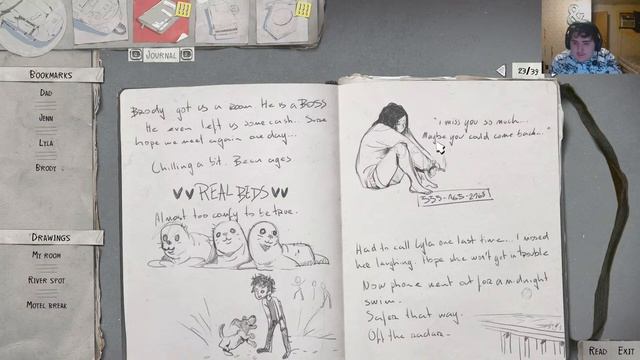 JOURNAL
23/39
BOOKMARKS
DAD
JENN
LYLA
BRODY
DRAWINGS
MY ROOM
RIVER SPOT
MOTEL BREAK
Brody got us a room He is a BOSS
He even left us some cash. Sure
hope we meet again one day...
Chilling a bit. Been ages
REAL BEDS
Almost too comfy to be true.
"i miss you so much...
Maybe you could come back..."
Had to call Lyla one last time... I missed
her laughing. Hope she won't get in trouble
Now phone went out for a midnight
swim.
Safer that way.
Off the radar.
READ EXIT